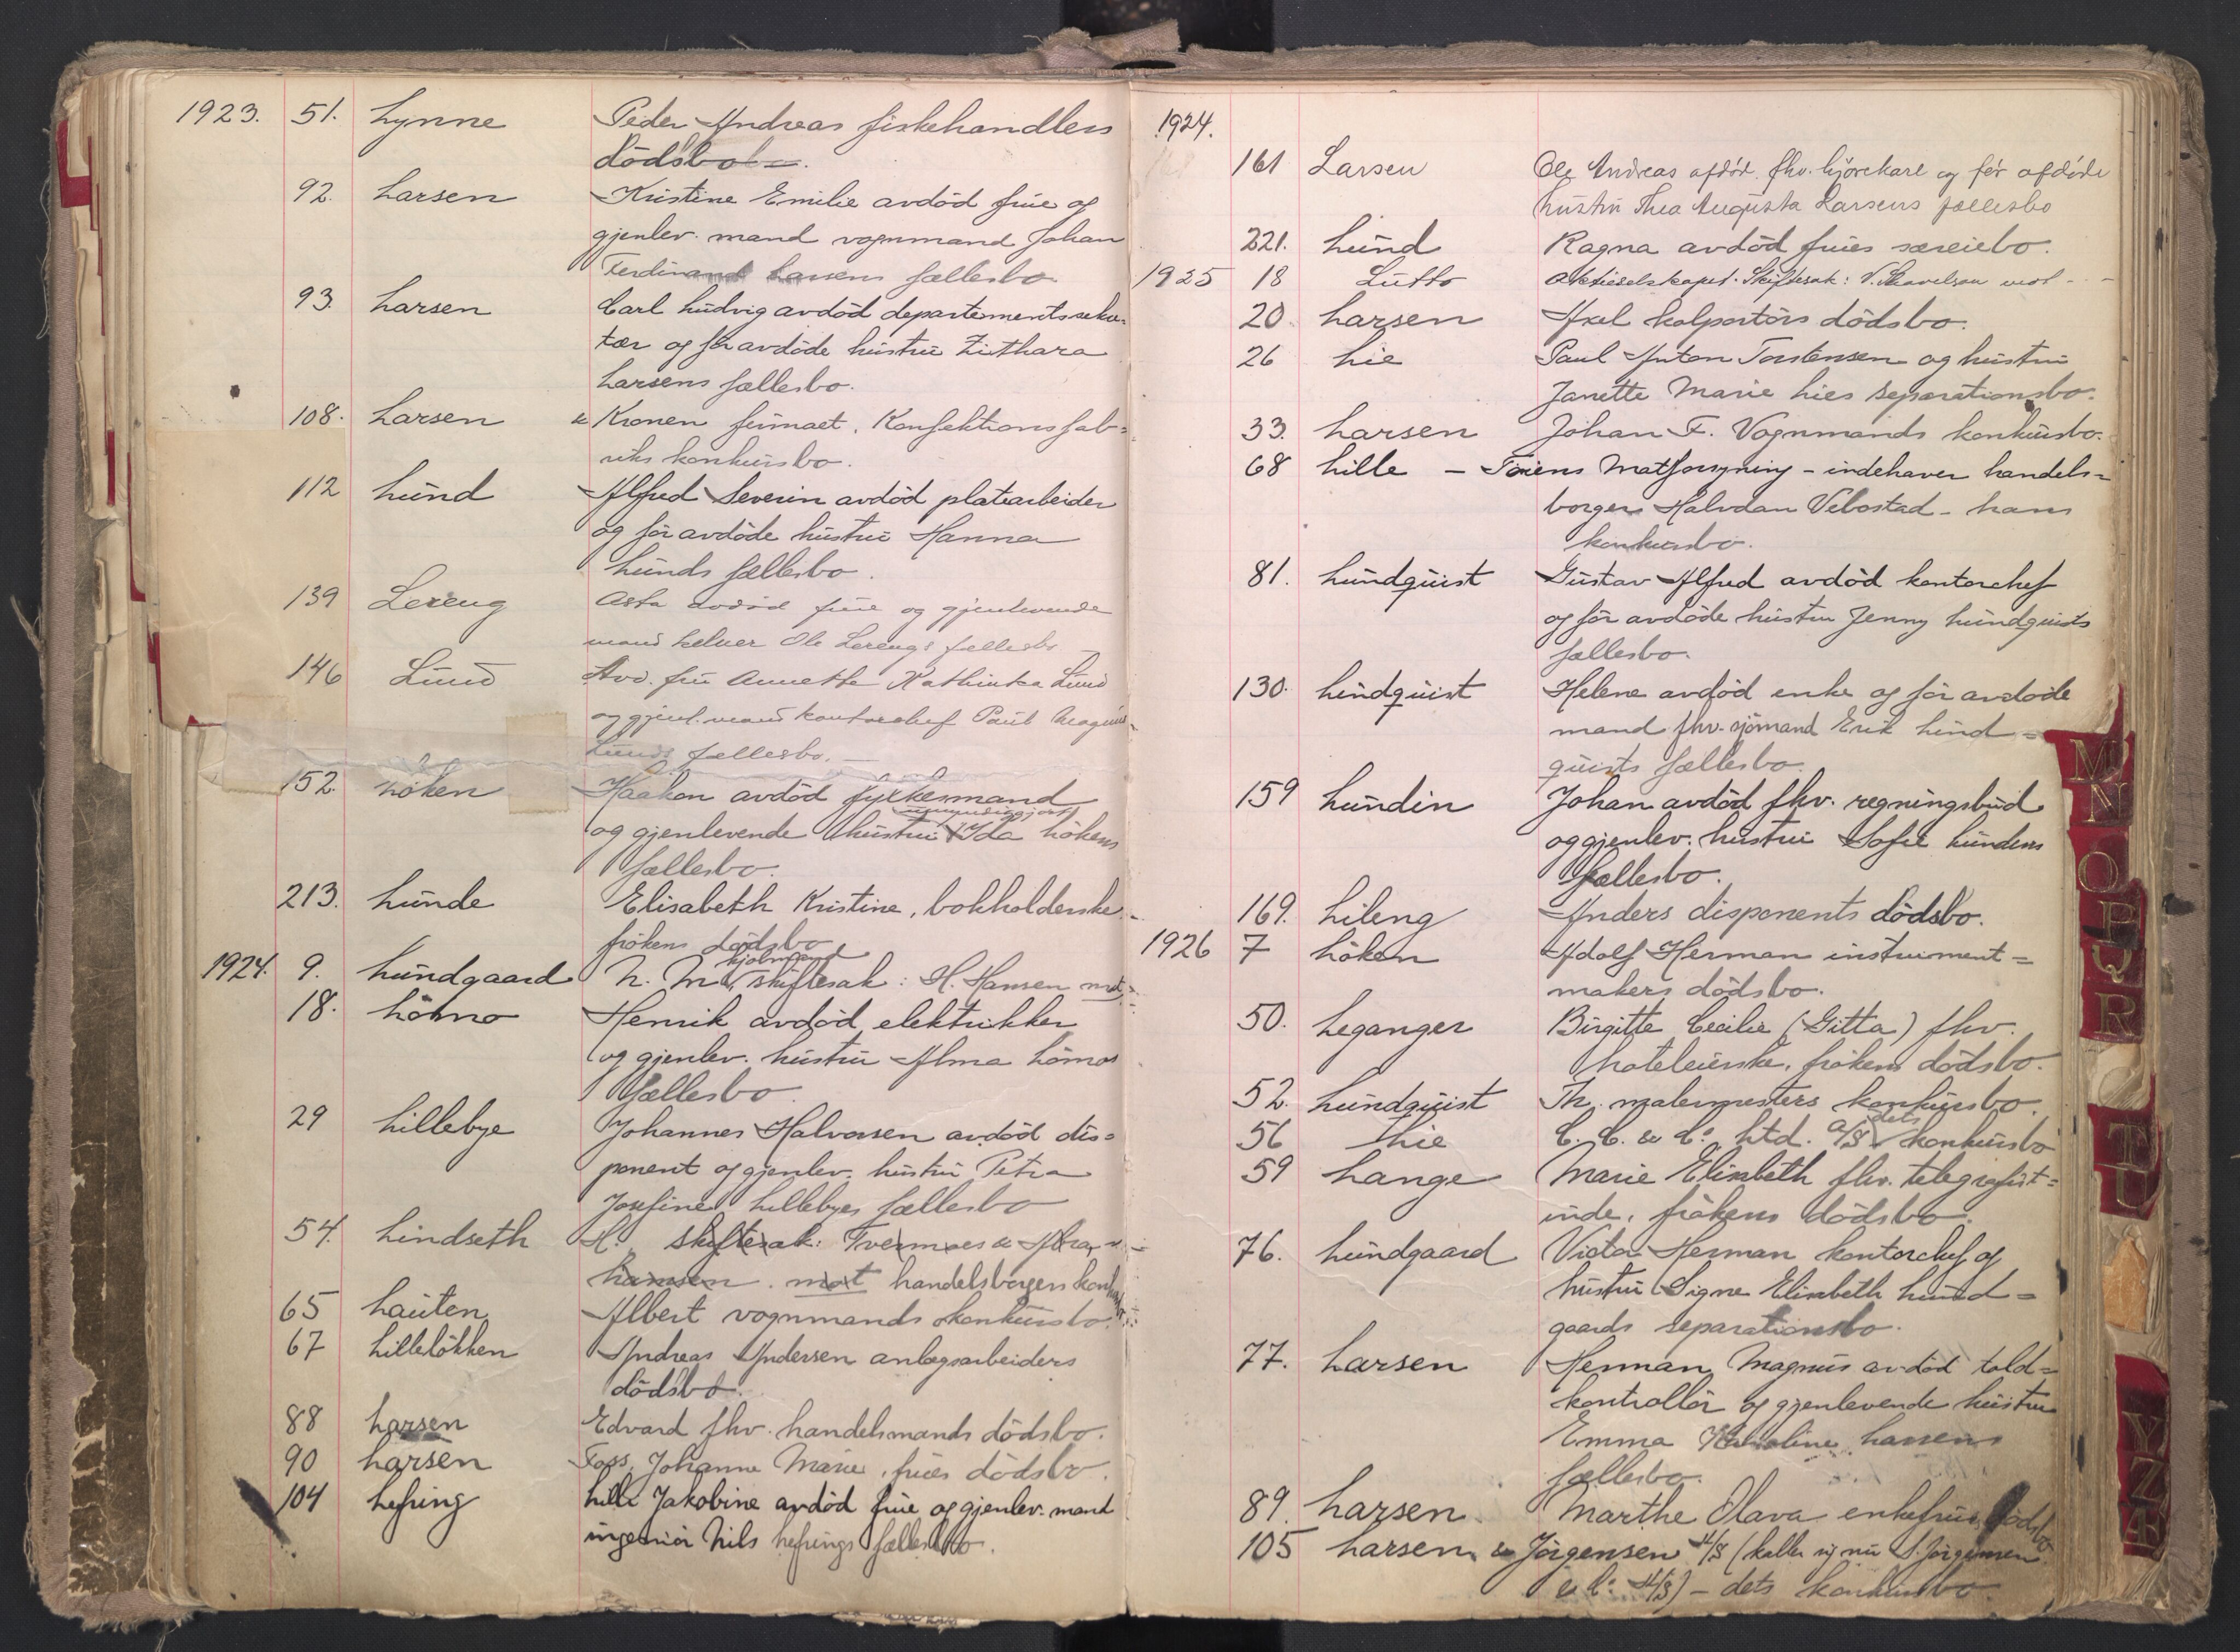 1923. 51. Lynne Peder Andreas fiskehandlers
dödsbo.
92. Larsen Kristine Emilie avdöd frue og
gjenlev. mand vognmand Johan
Ferdinand Larsens fællesbo
93. Larsen Carl Ludvig avdöd departementssekre-
tær og før avdöde hustru
Larsens fællesbo.
108. Larsen & Kronen firmaet, Konfektionsfab-
riks konkursbo.
112 Lund Alfred Severin avdöd platearbeider
og før avdöde hustru Hanna
Lunds fællesbo.
139 Lereng Asta avdöd frue og gjenlevende
mand kelner Ole Lerengs fellesbo
146 Lund Avd. fru Annette Kathinka Lund
og gjenl. mand kontorchef Paul Magnus
Lunds fellesbo.
152. Löken Haakon avdöd fyrkesmand
og gjenlevende hustru umyndiggjort Ida Lökens
fællesbo.
213. Lunde Elisabeth Kristine, bokholderske
frökens dödsbo
1924. 9. Lundgaard N. M. skiftesak: H. Hansen mot
18. Lömo Henrik avdöd elektrikker
og gjenlev. hustru Alma Lömos
fællesbo
29 Lillebye Johannes Halvorsen avdöd dis-
ponent og gjenlev. hustru Petra
Josefine Lillebyes fællesbo
54. Lindseth H. skiftesak: Tvermoes & Abra-
hamsen mot handelsborgers konk
65 Lauten Albert vognmands konkursbo.
67 Lillelökken Andreas Andersen anlægsarbeiders
dödsbo.
88 Larsen Edvard fhv. handelsmands dödsbo.
90 Larsen Foss, Johanne Marie, frues dödsbo.
104 Lefring Lilli Jakobine avdöd frue og gjenlev. mand
ingeniör Nils Lefrings fællesbo.
1924.
161 Larsen Ole Andreas afdöd fhv. kjörekarl og før afdöde
hustru Thea Augusta Larsens fællesbo
221. Lund Ragna avdöd frues særeiebo.
1925 18 Lutto Aktieselskapet. Skiftesak: V. mot
20 Larsen Axel kolportörs dödsbo.
26 Lie Paul Anton Torstensen og hustru
Janette Marie Lies separationsbo.
33. Larsen Johan F. Vognmands konkursbo.
68 Lille - Töiens Matforsyning - indehaver handels-
borger Halvdan Vebostad - hans
konkursbo.
81. Lundquist Gustav Alfred avdöd kontorchef
og før avdöde hustru Jenny Lundquists
fællesbo.
130. Lindquist Helene avdöd enke og før avdöde
mand fhv. sjömand Erik Lind-
quists fællesbo.
159 Lundin Johan avdöd fhv. regningsbud
og gjenlev. hustru Sofie Lundins
fællesbo.
169. Lileng Anders disponents dödsbo.
1926 7 Löken Adolf Herman instrument-
makers dödsbo.
50. Leganger Birgitte Cecilie (Gitta) fhv.
hoteleierske, frökens dödsbo.
52. Lundquist Th. malermesters konkursbo.
56 Lie C. C. & Co. Ltd. A/S dets konkursbo
59 Lange Marie Elisabeth fhv. telegrafist-
inde, frökens dödsbo.
76. Lundgaard Victor Herman kontorchef og
hustru Signe Elisabeth Lund-
gaards separationsbo.
77. Larsen Herman Magnus avdöd told-
kontrollör og gjenlevende hustru
Emma Karoline Larsens
fællesbo.
89. Larsen Marthe Olava enkefrues dödsbo
105 Larsen & Jörgensen A/S (kaller sig nu S. Jörgensen
& Co. A/S) - dets konkursbo.
M
N
O
P
Q
R
T
U
Y
Z
Æ